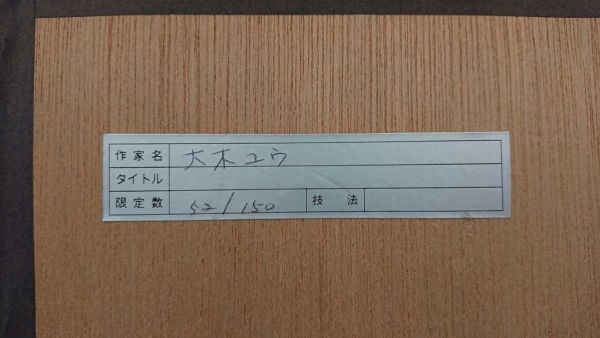 作家名 大木ユウ
タイトル
限定数 52/150 技法